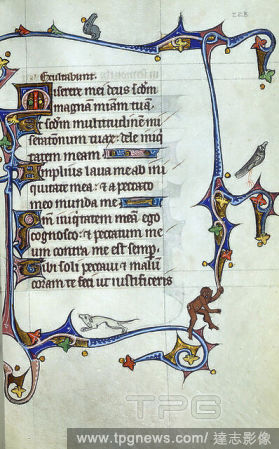 Exultabunt.
Miserere mei deus scđm
magnam miam tuā.
Et scđm multitudinem mi
serationum tuar: dele iniq
tatem meam
Amplius laua me ab ini
quitate mea: et a peccato
meo munda me
Qm iniquitatem meā ego
cognosco: et peccatum me
um contra me est semp.
Tibi soli peccaui et malū
coram te feci ut iustificeris
TPG
www.tpgnews.com/ 達志影像